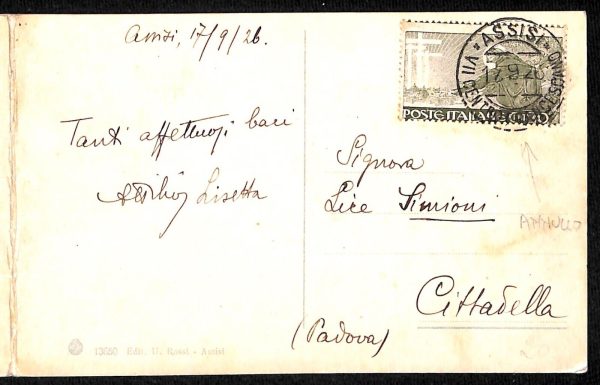 Assisi, 17/9/26.
Tanti affettuosi baci
Lisetta
13650 Edit. U. Rossi - Assisi
POSTE ITALIANE CENT. 30
ASSISI
VII CENTENARIO FRANCESCANO
Signora
Lice Simioni
Cittadella
(Padova)
ANNULLO